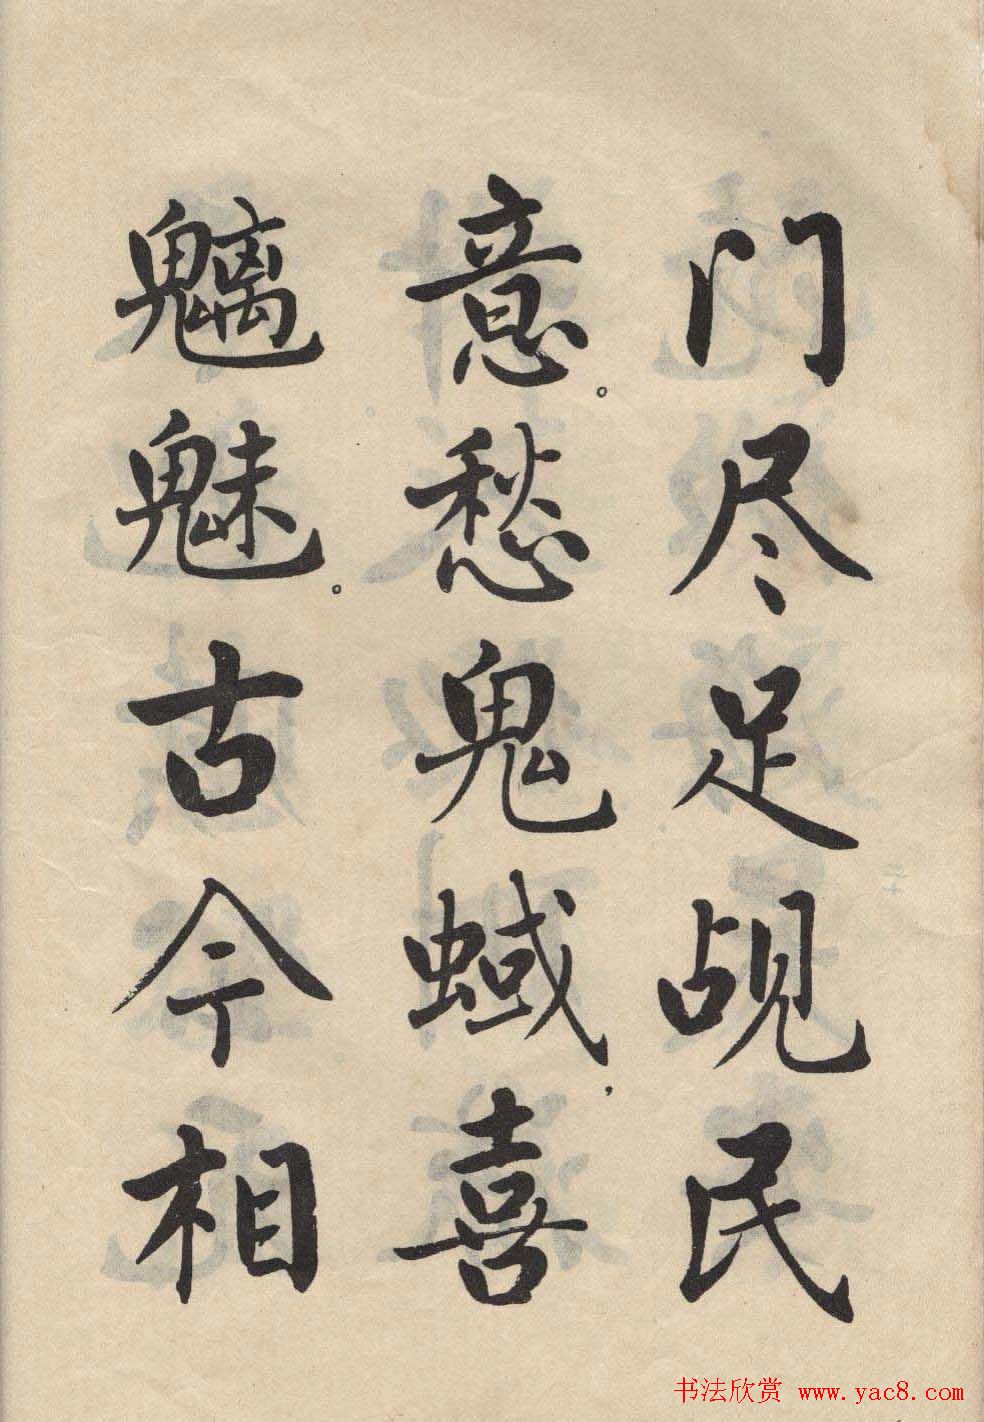 门尽足觇民
意。愁鬼蜮，喜
魑魅。古今相
书法欣赏 www.yac8.com